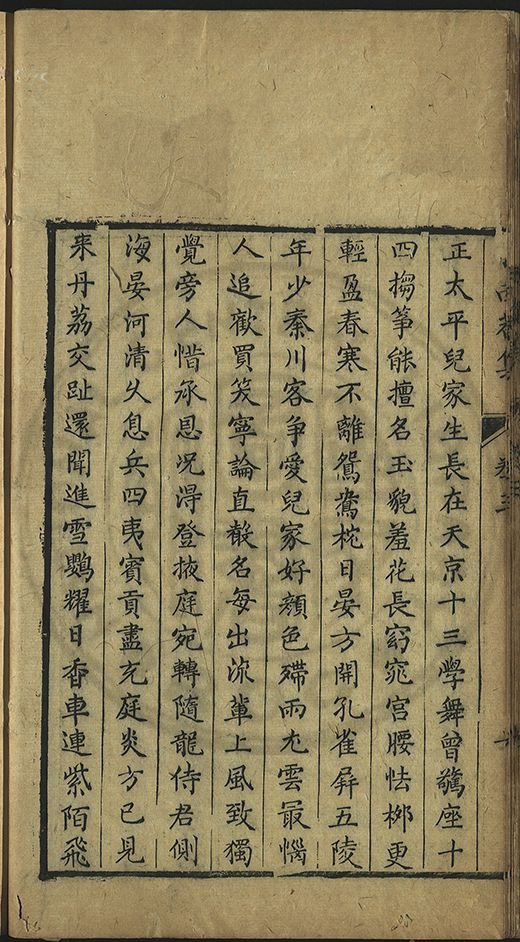 正太平兒家生長在天京十三學舞曾驚座十
四搊箏能擅名玉貌羞花長窈窕宮腰怯栁更
輕盈春寒不離鴛鴦枕日晏方開孔雀屛五陵
年少秦川客争愛兒家好顔色殢雨尤雲最惱
人追歡買笑寧論直散名每出流輩上風致獨
覺旁人惜承恩况淂登掖庭宛轉隨龍侍君側
海晏河清久息兵四夷賓貢盡充庭炎方已見
来丹荔交趾還聞進雪鸚耀日香車連紫陌飛
卷三